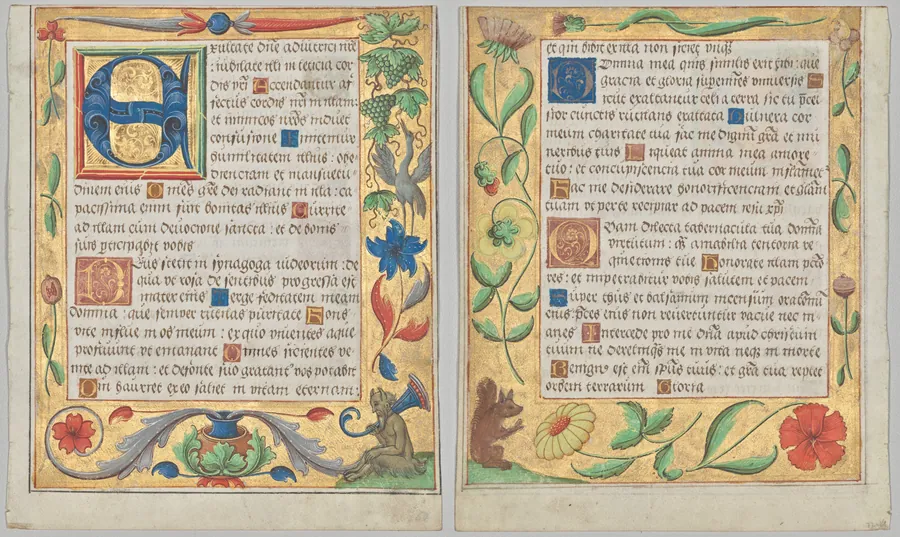 Exultate dne adiutrici nre
: iubilate illi in leticia cor
dis vri Accendantur af
fectus cordis nri in illam:
et inimicos nros induet
confusione Imitemur
humilitatem illius: obe
dienciam et mansuetu
dinem eius Omes gre dei radiant in illa: ca
pacissima enim fuit bonitas illius Currite
ad illam cum devocione sancta: et de bonis
suis pticipabit vobis
Deus stetit in synagoga iudeorum: de
qua ut rosa de sentibus progressa est
mater eius Terge feditatem meam
domina: que semper rutilas puritate Fons
vite influe in os meum: ex quo viventes aque
profluunt et emanant Omnes sicientes ve
nite ad illam: et de fonte suo gratanter vos potabit
Qui hauret ex eo saliet in vitam eternam:
et qui bibit ex illa non siciet unqs
Domina mea quis similis erit tibi: que
gracia et gloria supereminens universis
Sicut exaltantur celi a terra sic tu pcel
sior cunctis rutilans exaltata Vulnera cor
meum charitate tua fac me dignum gra et mu
neribus tuis Liqueat anima mea amore
tuo: et concupiscencia tua cor meum inflamet
Fac me desiderare honorificenciam et gloriam
tuam ut per te recipiar ad pacem iesu xpi
Quam dilecta tabernacula tua domina
virtutum: qm amabilia tentoria re
Honorate illam pctores
: et impetrabitur vobis salutem et pacem
Super thus et balsamum incensum orationum
eius pces eius non revertuntur vacue nec in
anes Intercede pro me dna apud christum
tuum ne derelinqs me in vita neqs in morte
Benignus est eni spus tuus: et gra tua replet
orbem terrarum Gloria